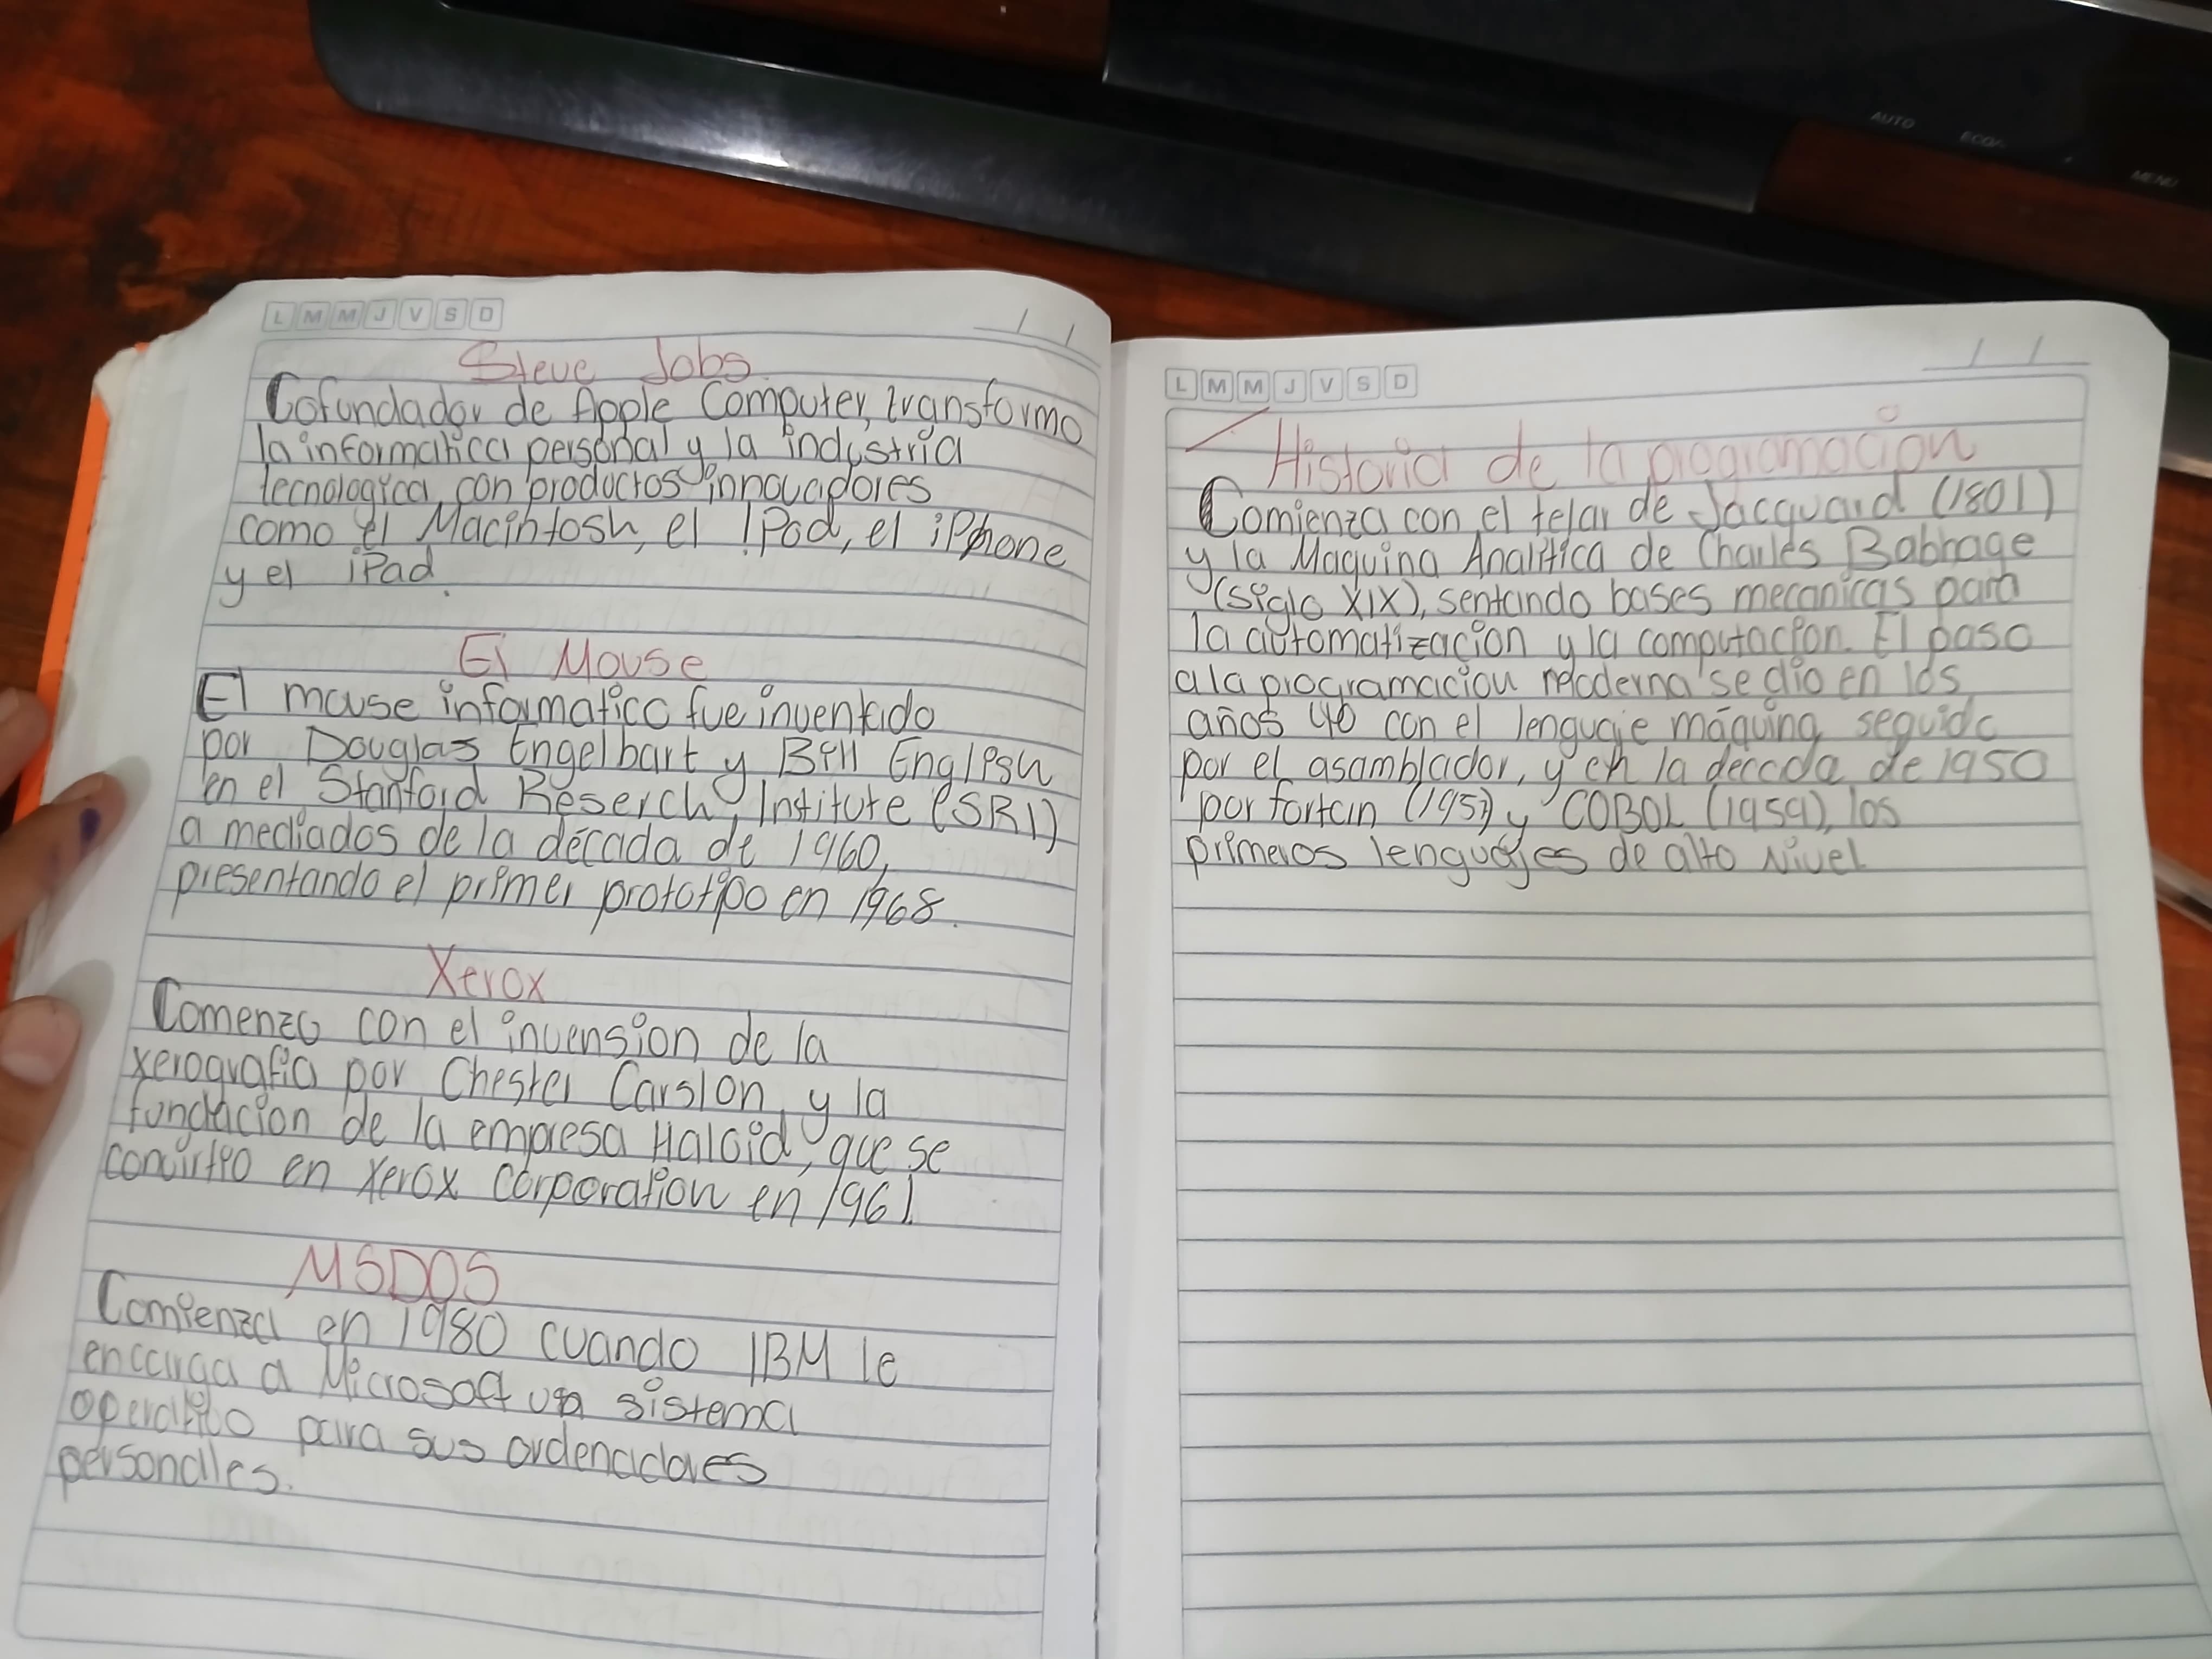 L M M J V S D
Steve Jobs
Cofundador de Apple Computer, transformo
la informatica personal y la industria
tecnologica, con productos innovadores
como el Macintosh, el IPod, el iPhone
y el iPad.
El Mouse
El mouse informatico fue inventado
por Douglas Engelbart y Bill English
en el Stanford Reserch Institute (SRI)
a mediados de la década de 1960,
presentando el primer prototipo en 1968.
Xerox
Comenzo con el invension de la
xerografia por Chester Carslon, y la
fundacion de la empresa Haloid, que se
convirtio en Xerox Corporation en 1961.
MSDOS
Comienza en 1980 cuando IBM le
encarga a Microsoft un sistema
operativo para sus ordenadores
personales.
L M M J V S D
Historia de la programacion
Comienza con el telar de Jacquard (1801)
y la Maquina Analitica de Charles Babbage
(siglo XIX), sentando bases mecanicas para
la automatizacion y la computacion. El paso
a la programacion moderna se dio en los
años 40 con el lenguaje máquina, seguido
por el asamblador, y en la decada de 1950
por fortan (1957) y COBOL (1959), los
primeros lenguajes de alto nivel
AUTO ECO/- MENU